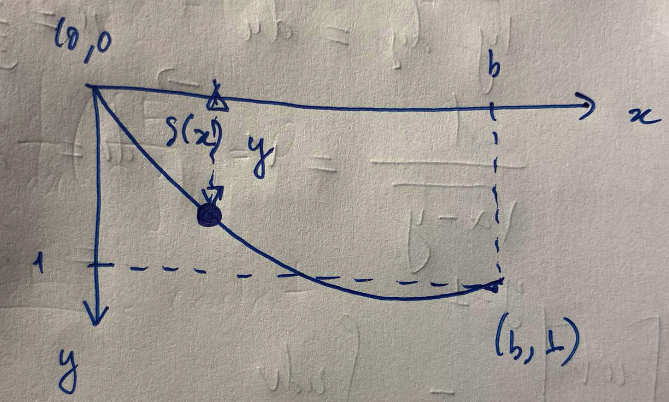 (0,0
b
x
S(x) y
1
(b, 1)
y